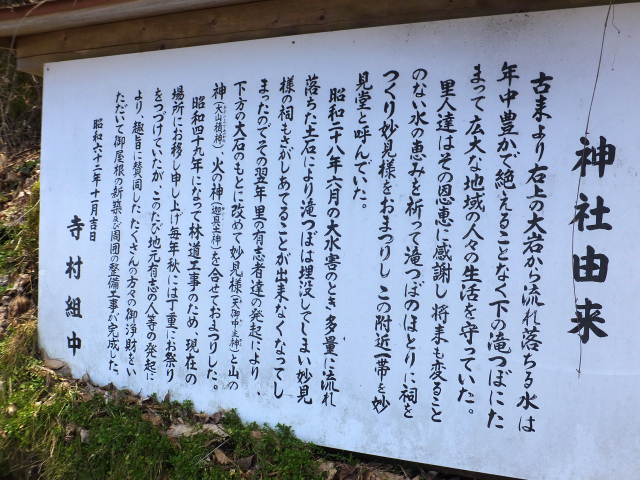 神社由来
古来より右上の大岩から流れ落ちる水は
年中豊かで絶えることなく下の滝つぼにた
まって広大な地域の人々の生活を守っていた。
里人達はその恩恵に感謝し将来も変ること
のない水の恵みを祈って滝つぼのほとりに祠を
つくり妙見様をおまつりしこの附近一帯を妙
見堂と呼んでいた。
昭和二十八年六月の大水害のとき多量に流れ
落ちた土石により滝つぼは埋没してしまい妙見
様の祠もさがしあてることが出来なくなってし
まったのでその翌年里の有志者達の発起により、
下方の大石のもとに改めて妙見様(天御中主神)と山の
神(大山積神)火の神(迦具土神)を合せておまつりした。
昭和四十九年になって林道工事のため、現在の
場所にお移し申し上げ毎年秋には丁重にお祭り
をつづけていたが、このたび地元有志の人等の発起に
より、趣旨に賛同したたくさんの方々の御浄財をい
ただいて御屋根の新築及び周囲の整備工事が完成した。
昭和六十二年十一月吉日
寺村組中